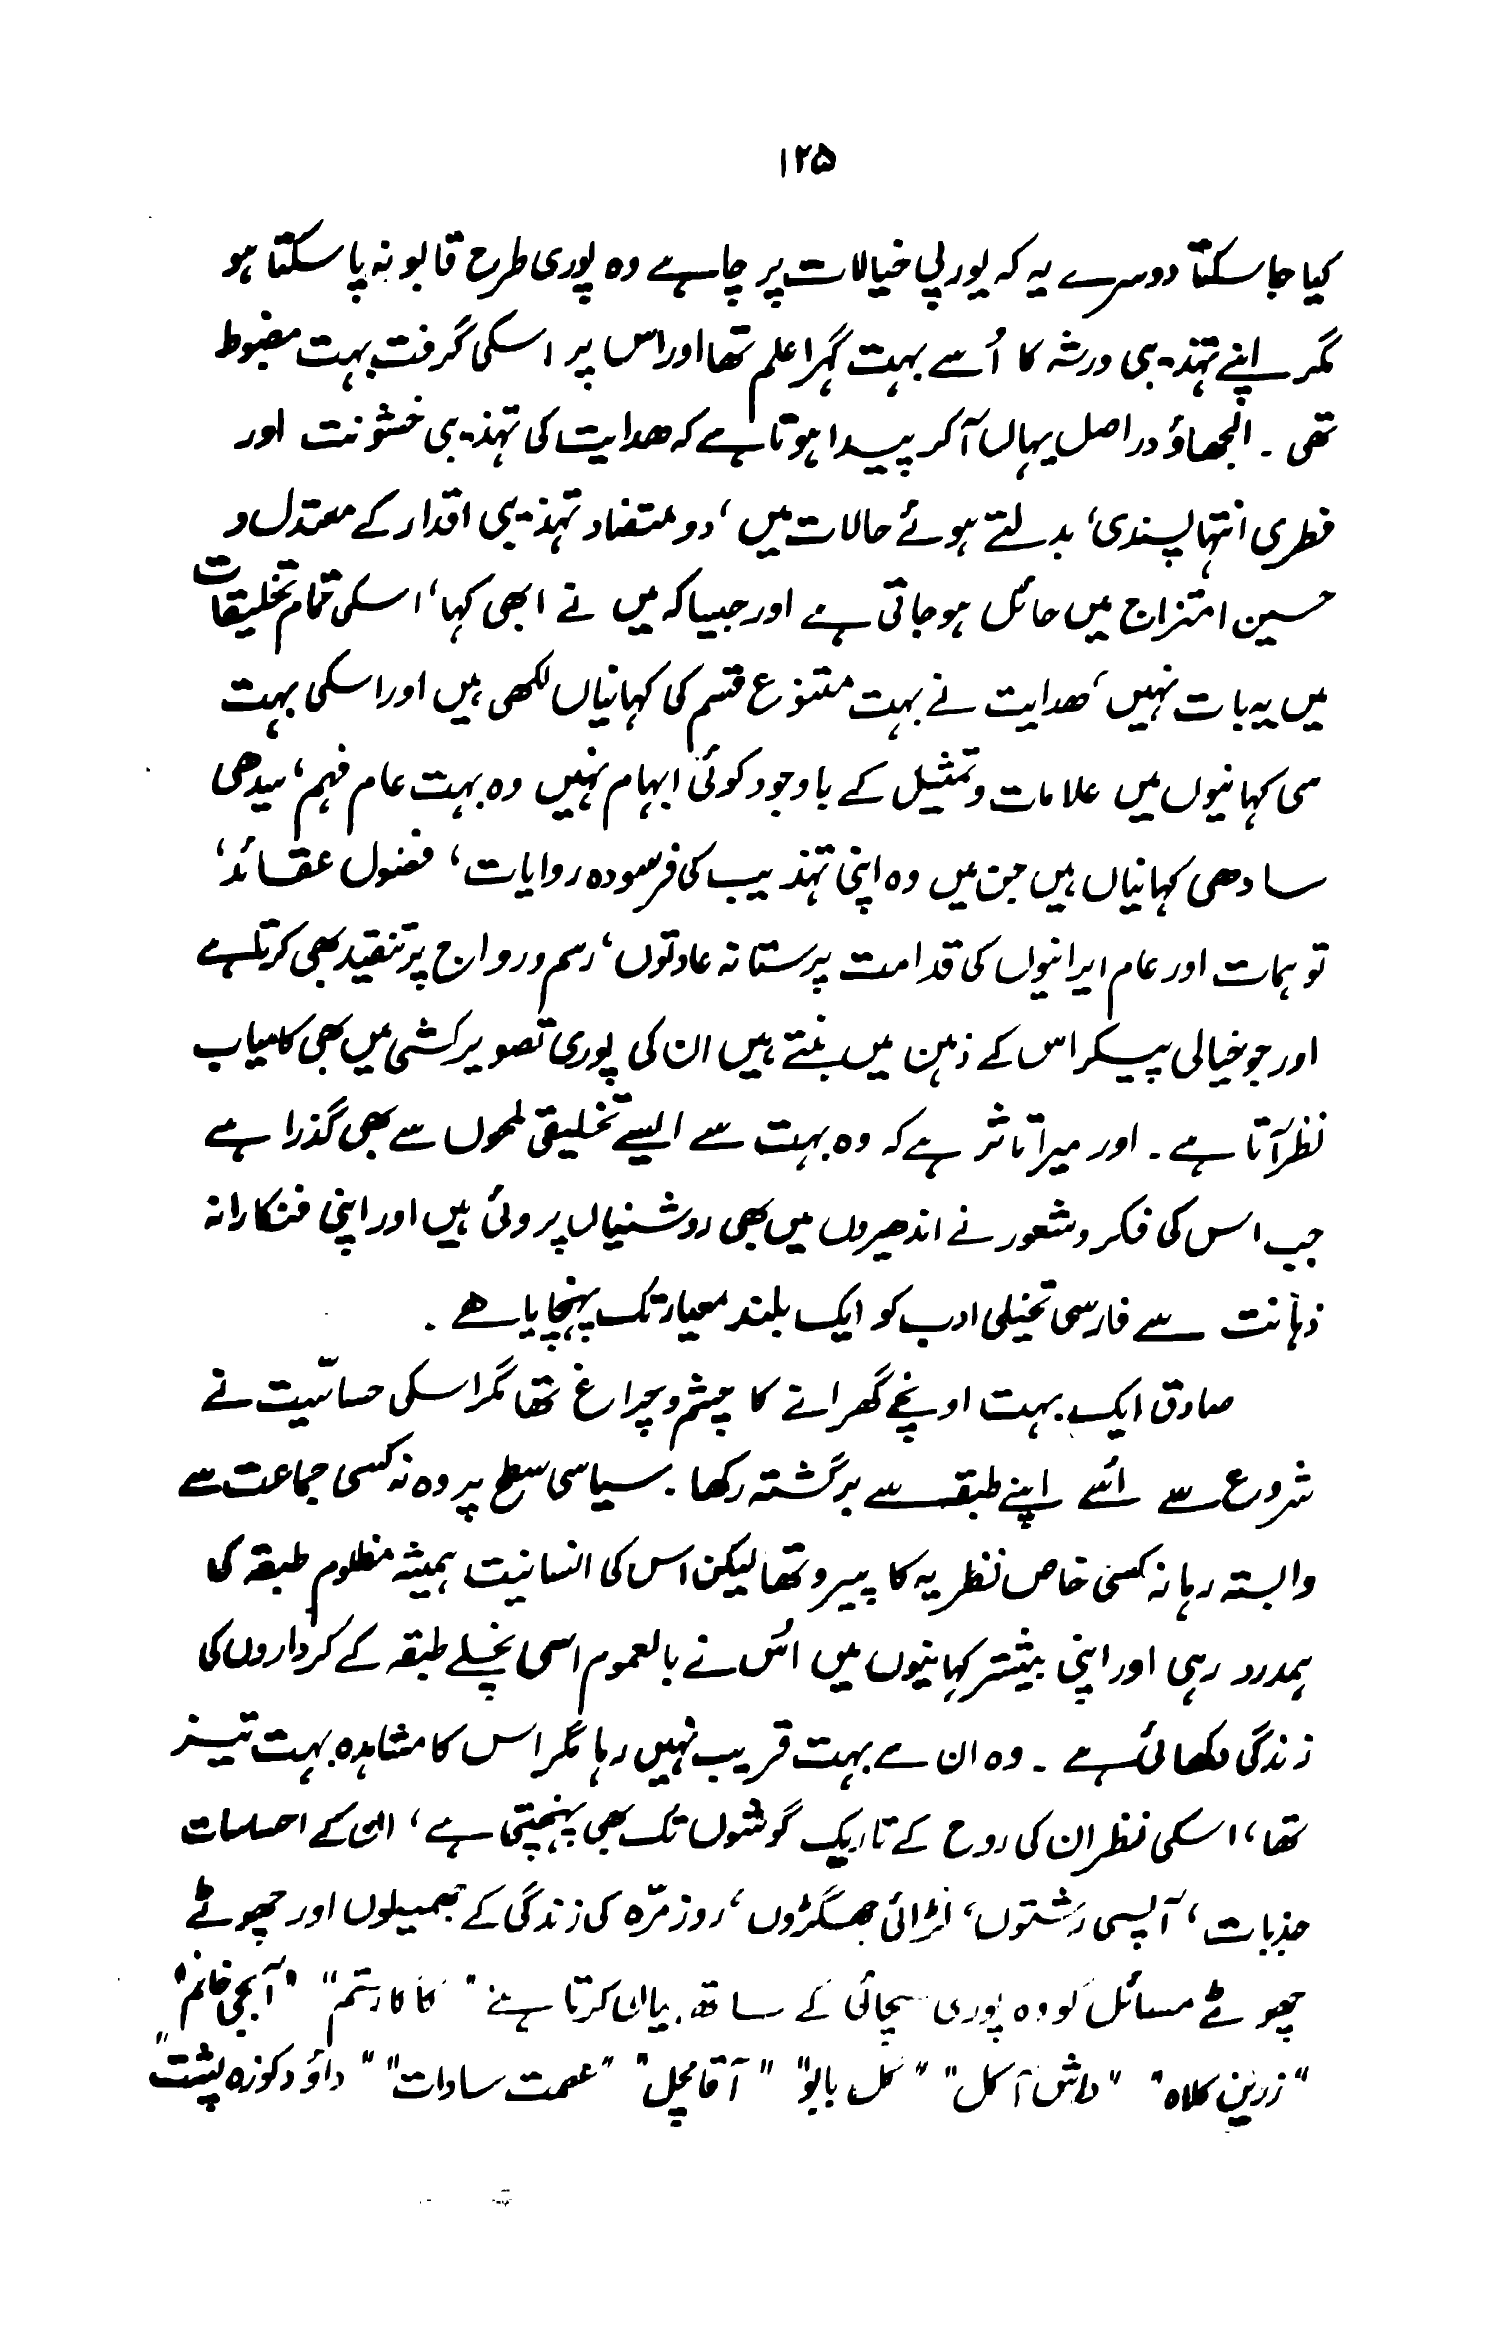 ۱۲۵
کیا جا سکتا دوسرے یہ کہ یورپی خیالات پر چاہے وہ پوری طرح قابو نہ پا سکتا ہو
مگر اپنے تہذیبی ورثہ کا اُسے بہت گہرا علم تھا اور اس پر اسکی گرفت بہت مضبوط
تھی ۔ الجھاؤ دراصل یہاں آکر پیدا ہوتا ہے کہ ھدایت کی تہذیبی خشونت اور
فطری انتہا پسندی، بدلتے ہوئے حالات میں، دو متضاد تہذیبی اقدار کے معتدل و
حسین امتزاج میں حائل ہو جاتی ہے اور جیسا کہ میں نے ابھی کہا، اسکی تمام تخلیقات
میں یہ بات نہیں، ھدایت نے بہت متنوع قسم کی کہانیاں لکھی ہیں اور اسکی بہت
سی کہانیوں میں علامات و تمثیل کے باوجود کوئی ابہام نہیں وہ بہت عام فہم، سیدھی
سادھی کہانیاں ہیں جن میں وہ اپنی تہذیب کی فرسودہ روایات، فضول عقائد،
توہمات اور عام ایرانیوں کی قدامت پرستانہ عادتوں، رسم و رواج پر تنقید بھی کرتا ہے
اور جو خیالی پیکر اس کے ذہن میں بنتے ہیں ان کی پوری تصویر کشی میں بھی کامیاب
نظر آتا ہے ۔ اور میرا تاثر ہے کہ وہ بہت سے ایسے تخلیقی لمحوں سے بھی گذرا ہے
جب اس کی فکر و شعور نے اندھیروں میں بھی روشنیاں پروئی ہیں اور اپنی فنکارانہ
ذہانت سے فارسی تخیلی ادب کو ایک بلند معیار تک پہنچایا ھے ۔
صادق ایک بہت اونچے گھرانے کا چشم و چراغ تھا مگر اسکی حساسّیت نے
شروع سے اُسے اپنے طبقہ سے برگشتہ رکھا ۔ سیاسی سطح پر وہ نہ کسی جماعت سے
وابستہ رہا نہ کسی خاص نظریہ کا پیرو تھا لیکن اس کی انسانیت ہمیشہ مظلوم طبقہ کی
ہمدرد رہی اور اپنی بیشتر کہانیوں میں اُس نے بالعموم اسی نچلے طبقہ کے کرداروں کی
زندگی دکھائی ہے ۔ وہ ان سے بہت قریب نہیں رہا مگر اس کا مشاہدہ بہت تیز
تھا، اسکی نظر ان کی روح کے تاریک گوشوں تک بھی پہنچتی ہے، ان کے احساسات
جذبات، آپسی رشتوں، لڑائی جھگڑوں، روز مرّہ کی زندگی کے جھمیلوں اور چھوٹے
چھوٹے مسائل کو وہ پوری سچائی کے ساتھ بیان کرتا ہے " کاکا رستم" "آبجی خانم"
"زرین کلاہ" "داش آکل" "گل ببو" "آقا مچل" "عصمت سادات" "داؤد کوزہ پشت"